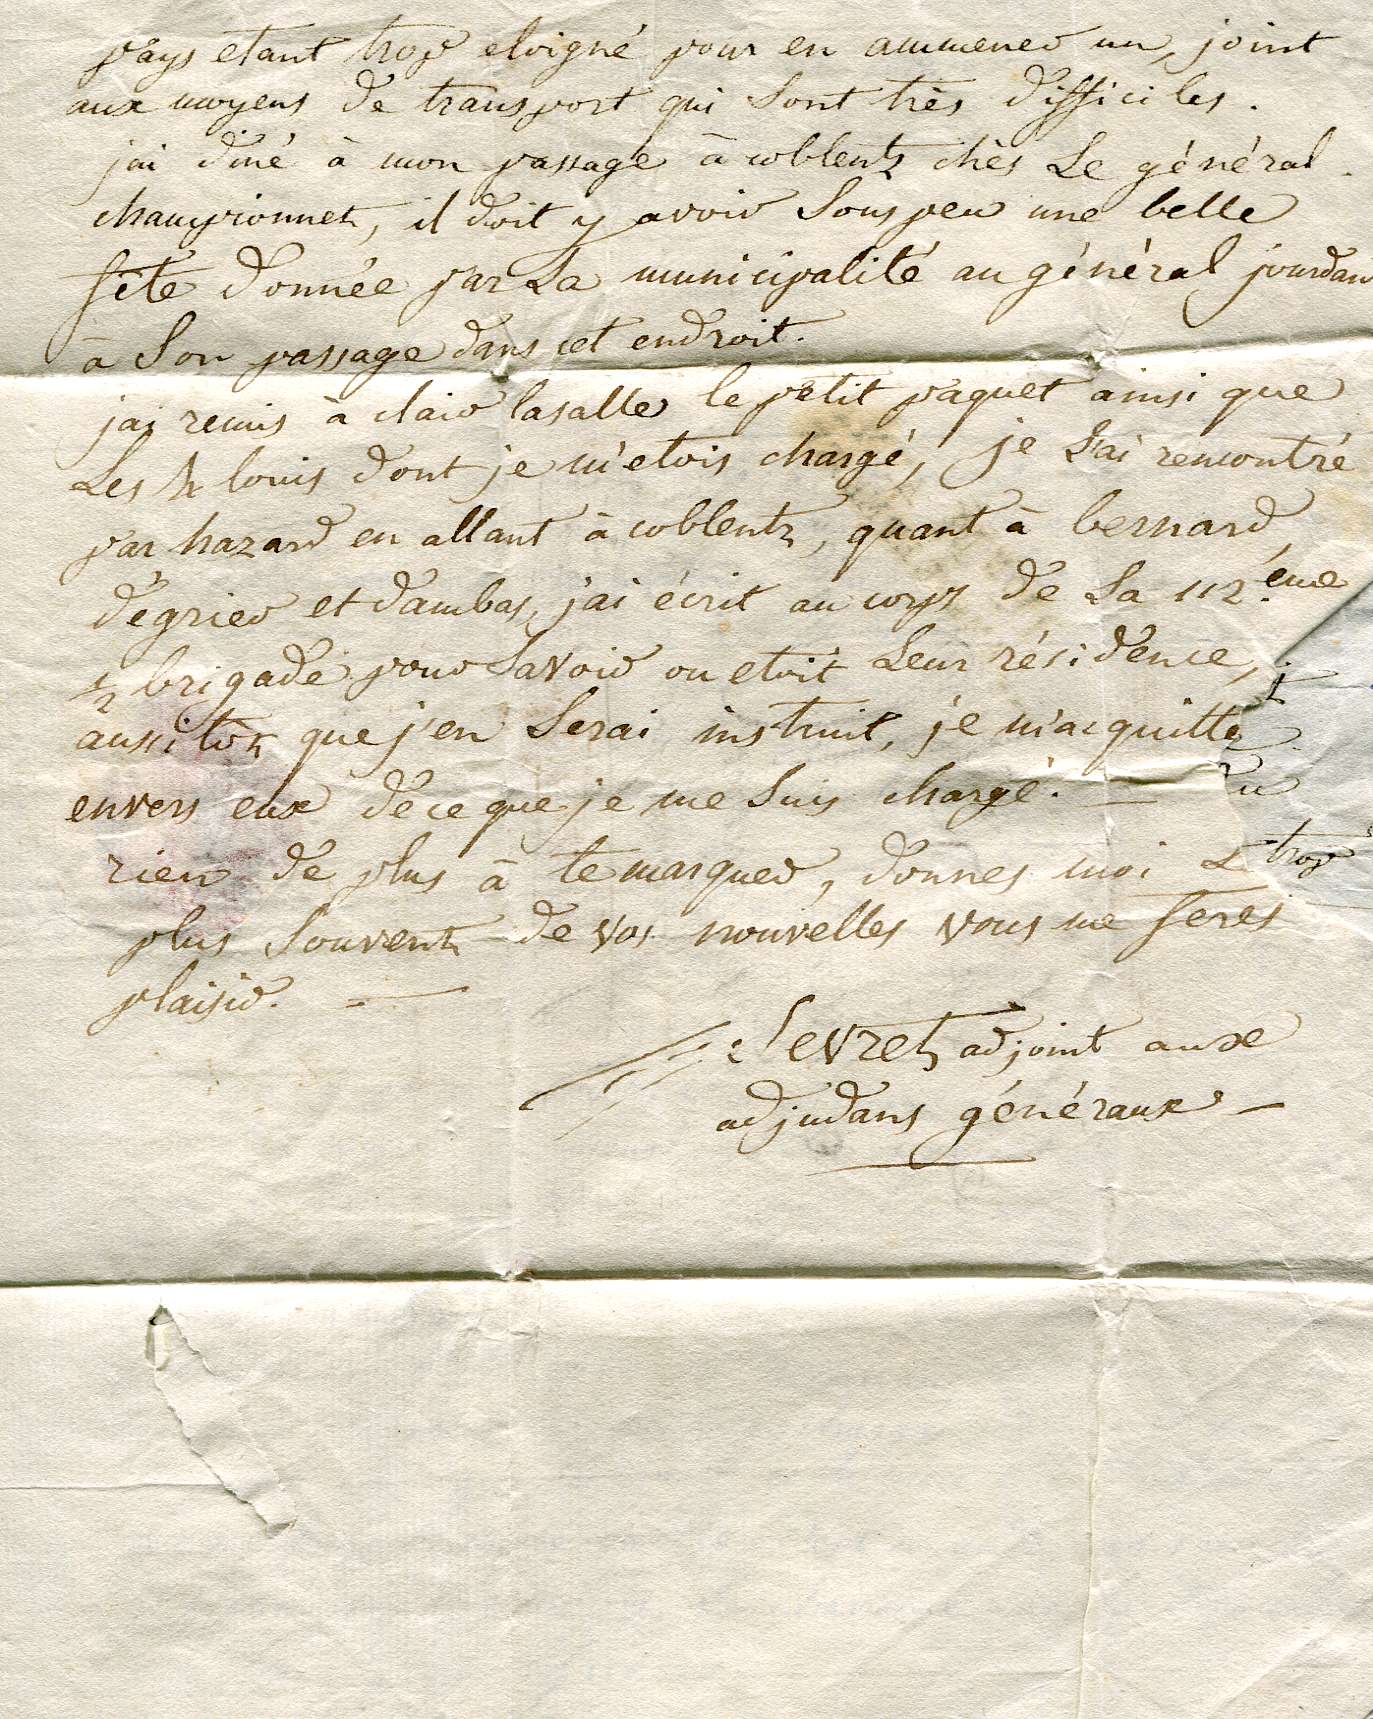 pays etant trop eloigné pour en ammener un, joint
aux moyens de transport qui sont très difficiles.
jai diné à mon passage à coblentz chès Le général
championnet, il doit y avoir sous peu une belle
fête donnée par La municipalité au général jourdan
à son passage dans cet endroit.
jai remis à clair lasalle le petit paquet ainsi que
Les 4 louis dont je m'etois chargé, je L'ai rencontré
par hazard en allant à coblentz, quant à bernard,
degrier et dambas, j'ai écrit au corps de La 112.eme
1/2 brigade pour savoir ou etoit Leur résidence,
aussitôt que j'en serai instruit, je m'acquitte
envers eux de ce que je me suis chargé. —
rien de plus à te marquer, donnes moi
trop
plus souvent de vos nouvelles vous me ferés
plaisir. —
Sevret adjoint aux
adjudans généraux —